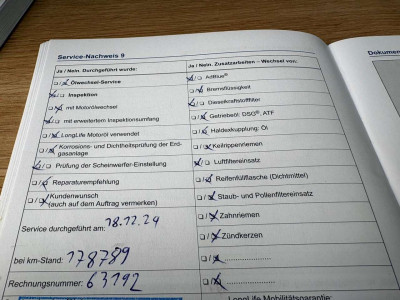 Service-Nachweis 9
Ja / Nein. Durchgeführt wurde:
Ölwechsel-Service
Inspektion
mit Motorölwechsel
mit erweitertem Inspektionsumfang
LongLife Motoröl verwendet
Korrosions- und Dichtheitsprüfung der Erd-
gasanlage
Prüfung der Scheinwerfer-Einstellung
Reparaturempfehlung
Kundenwunsch
(auch auf dem Auftrag vermerken)
Service durchgeführt am: 18.12.24
bei km-Stand: 178789
Rechnungsnummer: 63192
Ja / Nein. Zusatzarbeiten – Wechsel von:
AdBlue®
Bremsflüssigkeit
Dieselkraftstofffilter
Getriebeöl: DSG®, ATF
Haldexkupplung: Öl
Keilrippenriemen
Luftfiltereinsatz
Reifenfüllflasche (Dichtmittel)
Staub- und Pollenfiltereinsatz
Zahnriemen
Zündkerzen
LongLife Mobilitätsgarantie:
Dokumen